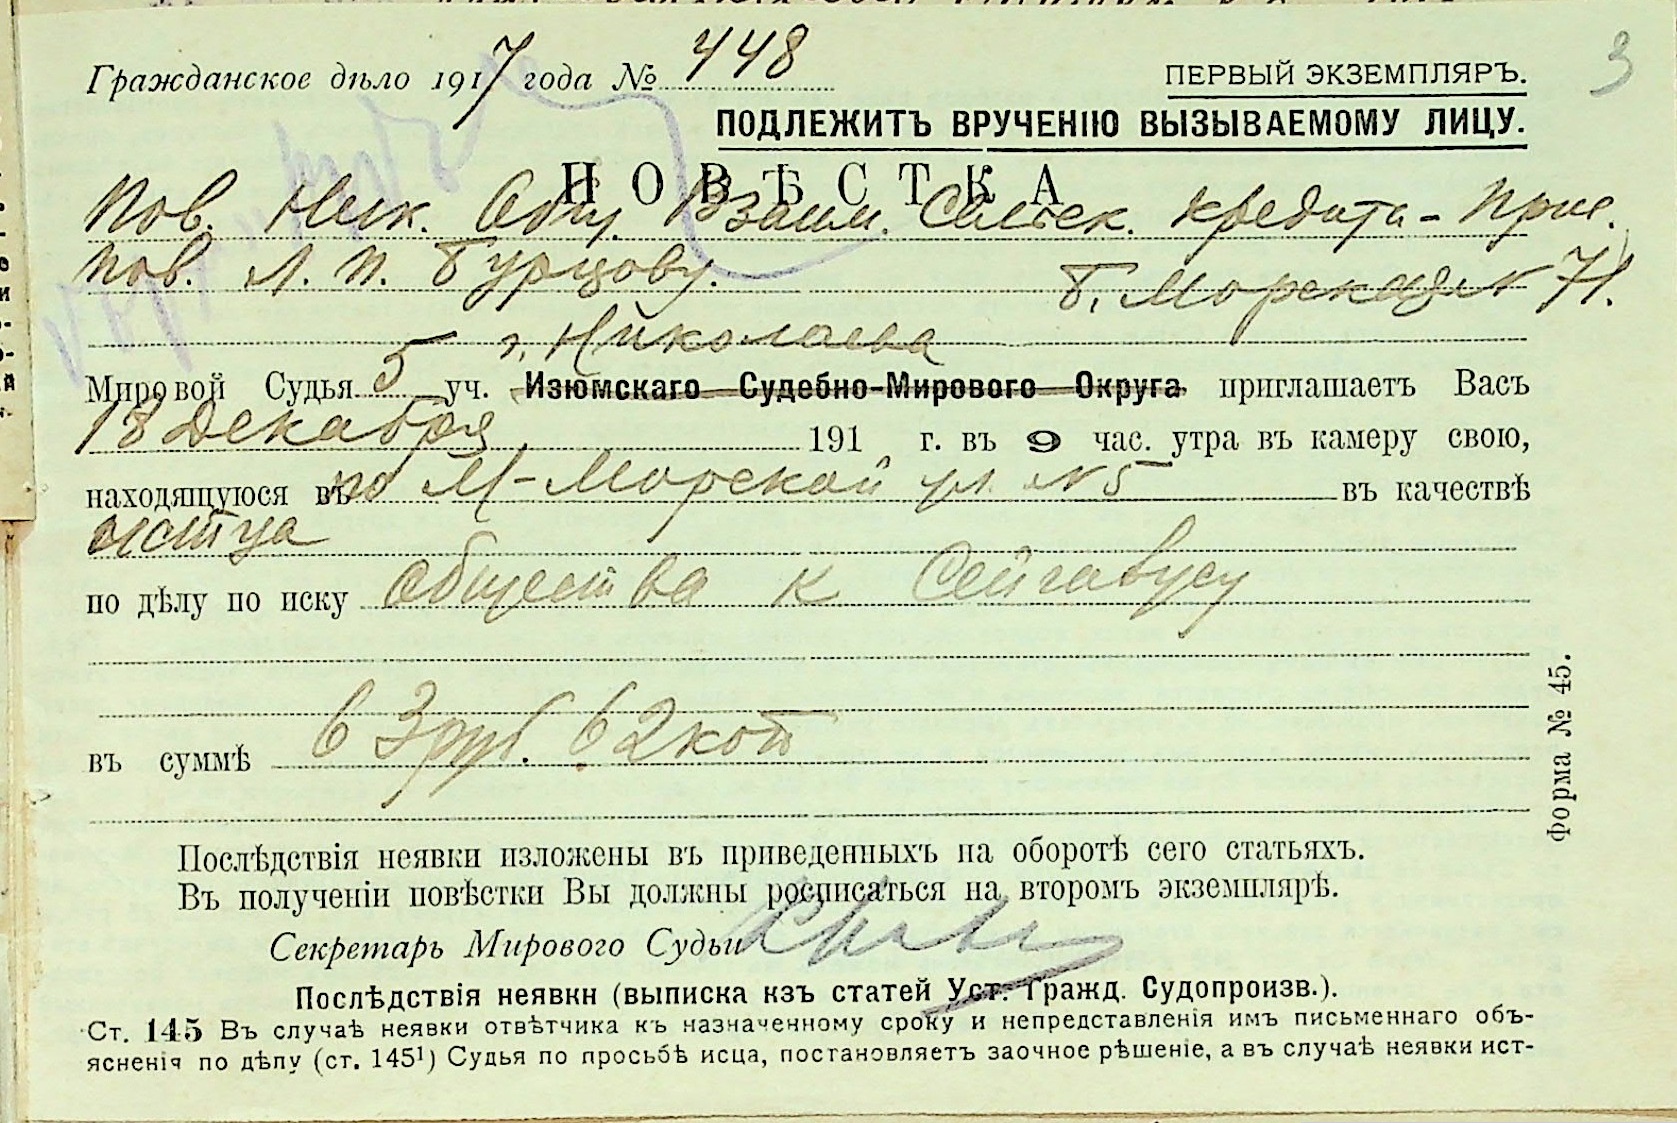 Гражданское дѣло 1917 года № 448
ПЕРВЫЙ ЭКЗЕМПЛЯРЪ.
3
ПОДЛЕЖИТЪ ВРУЧЕНІЮ ВЫЗЫВАЕМОМУ ЛИЦУ.
ПОВѢСТКА
Пов. Ник. Общ. Взаим. Кредита - Прис.
Пов. Л. П. Бурцову. Б. Морская № 71.
г. Николаева
Мировой Судья 5 уч. Изюмскаго Судебно-Мирового Округа приглашаетъ Васъ
18 Декабря 191 г. въ 9 час. утра въ камеру свою,
находящуюся въ по М-Морской ул. № 5 въ качествѣ
истца
по дѣлу по иску Общества к Сейгавусу
въ суммѣ 63 руб. 62 коп
Форма № 45.
Послѣдствія неявки изложены въ приведенныхъ на оборотѣ сего статьяхъ.
Въ полученіи повѣстки Вы должны росписаться на второмъ экземплярѣ.
Секретарь Мирового Судьи
Послѣдствія неявкн (выписка кзъ статей Уст. Гражд. Судопроизв.).
Ст. 145 Въ случаѣ неявки отвѣтчика къ назначенному сроку и непредставленія имъ письменнаго объ-
ясненія по дѣлу (ст. 145¹) Судья по просьбѣ исца, постановляетъ заочное рѣшеніе, а въ случаѣ неявки ист-